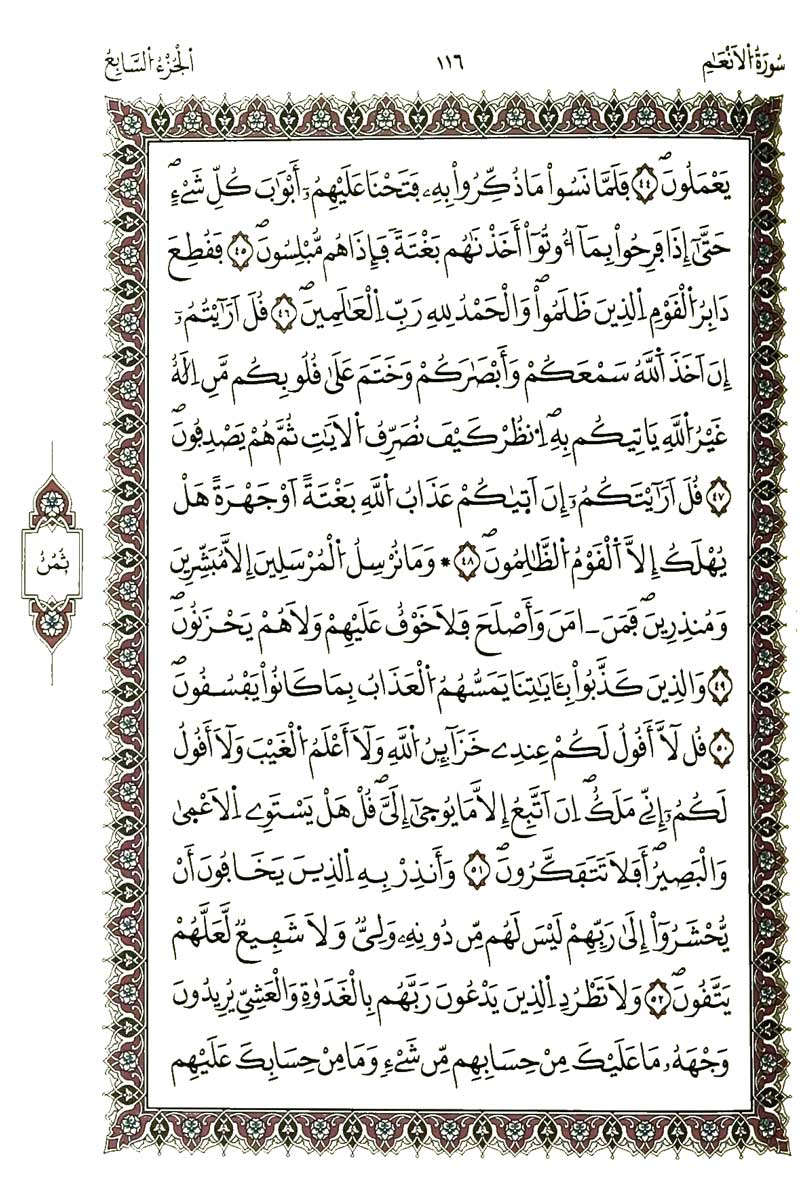 سُورَةُ الْأَنْعَامِ
١١٦
الْجُزْءُ السَّابِعُ
يَعْمَلُونَ ٤٤ فَلَمَّا نَسُواْ مَا ذُكِّرُواْ بِهِۦ فَتَحْنَا عَلَيْهِمُۥٓ أَبْوَٰبَ كُلِّ شَےْءٍ
حَتَّىٰٓ إِذَا فَرِحُواْ بِمَآ أُوتُوٓاْ أَخَذْنَٰهُم بَغْتَةً فَإِذَا هُم مُّبْلِسُونَ ٤٥ فَقُطِعَ
دَابِرُ الْقَوْمِ الذِينَ ظَلَمُواْ وَالْحَمْدُ لِلهِ رَبِّ الْعَٰلَمِينَ ٤٦ قُلَ اَرَآيْتُمُۥٓ
إِنَ اَخَذَ اَللَّهُ سَمْعَكُمْ وَأَبْصَٰرَكُمْ وَخَتَمَ عَلَىٰ قُلُوبِكُم مَّنِ اِلَٰهٌ
غَيْرُ اُللَّهِ يَاتِيكُم بِهِ اِ۟نظُرْ كَيْفَ نُصَرِّفُ اُ۬لَايَٰتِ ثُمَّ هُمْ يَصْدِفُونَ
٤٧ قُلَ اَرَآيْتَكُمُۥٓ إِنَ اَتٜيٰكُمْ عَذَابُ اُللَّهِ بَغْتَةً اَوْ جَهْرَةً هَلْ
يُهْلَكُ إِلَّا اَ۬لْقَوْمُ اُ۬لظَّٰلِمُونَ ٤٨ * وَمَا نُرْسِلُ اُ۬لْمُرْسَلِينَ إِلَّا مُبَشِّرِينَ
وَمُنذِرِينَ فَمَنَ ـ امَنَ وَأَصْلَحَ فَلَا خَوْفٌ عَلَيْهِمْ وَلَا هُمْ يَحْزَنُونَ
٤٩ وَالذِينَ كَذَّبُواْ بِـَٔايَٰتِنَا يَمَسُّهُمُ اُ۬لْعَذَابُ بِمَا كَانُواْ يَفْسُقُونَ
٥٠ قُل لَّآ أَقُولُ لَكُمْ عِندِے خَزَآئِنُ اُللَّهِ وَلَآ أَعْلَمُ اُ۬لْغَيْبَ وَلَآ أَقُولُ
لَكُمُۥٓ إِنِّے مَلَكٌ اِنَ اَتَّبِعُ إِلَّا مَا يُوحَىٰٓ إِلَيَّ قُلْ هَلْ يَسْتَوِے اِ۬لَاعْمَىٰ
وَالْبَصِيرُ أَفَلَا تَتَفَكَّرُونَ ٥١ وَأَنذِرْ بِهِ اِ۬لذِينَ يَخَافُونَ أَنْ
يُّحْشَرُوٓاْ إِلَىٰ رَبِّهِمْ لَيْسَ لَهُم مِّن دُونِهِۦ وَلِيٌّ وَلَا شَفِيعٌ لَّعَلَّهُمْ
يَتَّقُونَ ٥٢ وَلَا تَطْرُدِ اِ۬لذِينَ يَدْعُونَ رَبَّهُم بِالْغَدَوٰةِ وَالْعَشِيِّ يُرِيدُونَ
وَجْهَهُۥ مَا عَلَيْكَ مِنْ حِسَابِهِم مِّن شَےْءٍ وَمَا مِنْ حِسَابِكَ عَلَيْهِم
ثُمُنُ